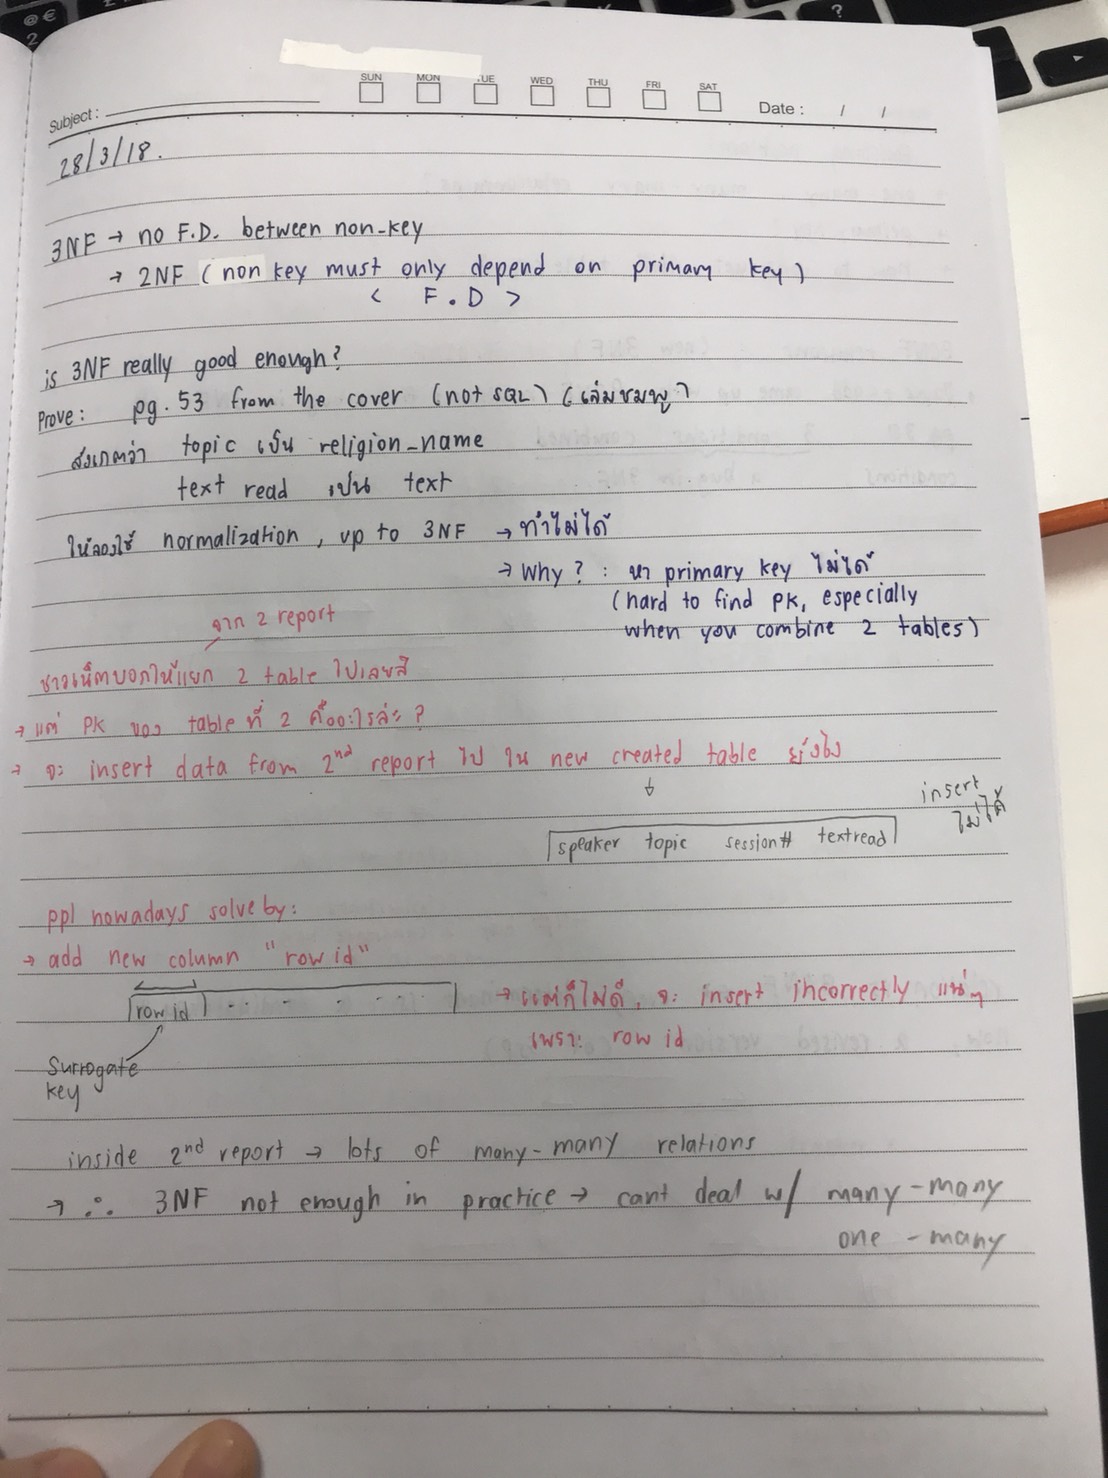 @ €
2
?
SUN MON TUE WED THU FRI SAT
Subject : Date : / /
28/3/18.
3NF → no F.D. between non-key
→ 2NF (non key must only depend on primary key)
< F.D >
is 3NF really good enough?
Prove: pg.53 from the cover (not SQL) (เล่มชมพู)
สังเกตว่า topic เป็น religion_name
text read เป็น text
ให้ลองใช้ normalization, up to 3NF → ทำไม่ได้
→ Why? : หา primary key ไม่ได้
(hard to find PK, especially
when you combine 2 tables)
จาก 2 report
ชาวเน็ตบอกให้แยก 2 table ไปเลยสิ
→ แต่ PK ของ table ที่ 2 คืออะไรล่ะ ?
→ จะ insert data from 2nd report ไป ใน new created table ยังไง
↓
insert
ไม่ได้
speaker topic session# textread
ppl nowadays solve by:
→ add new column "row id"
row id
→ แต่ก็ไม่ดี, จะ insert incorrectly แน่ๆ
เพราะ row id
Surrogate
key
inside 2nd report → lots of many-many relations
→ ∴ 3NF not enough in practice → cant deal w/ many-many
one - many